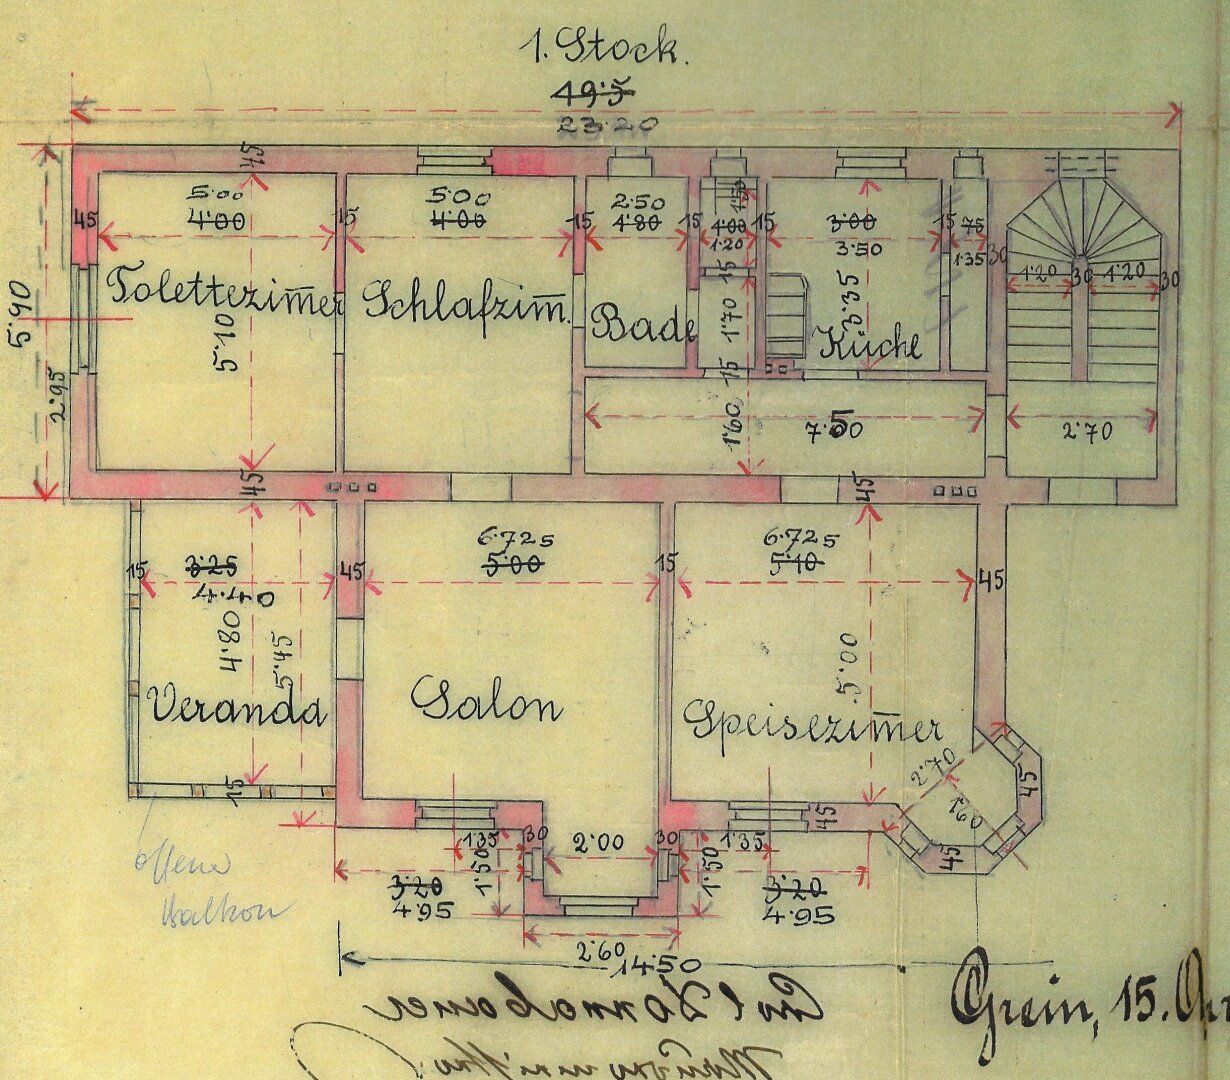 1. Stock.
49·5
23·20
45
5·00
4·00
5·00
4·00
2·50
4·80
1·50
1·00
1·20
3·00
3·50
75
1·35
45
15
15
15
15
15
30
1·20
30
1·20
30
5·90
2·95
Tolettezim̄er
Schlafzim̄.
Bade
Küche
5·10
15
1·70
3·35
15
1·60
7·50
2·70
45
45
6·725
5·00
6·725
5·10
15
3·25
4·40
45
15
45
4·80
5·45
5·00
Veranda
Salon
Speisezim̄er
15
2·70
1·60
45
45
45
1·35
30
2·00
30
1·35
1·50
1·50
3·20
4·95
3·20
4·95
offener
Balkon
2·60
14·50
Grein, 15.